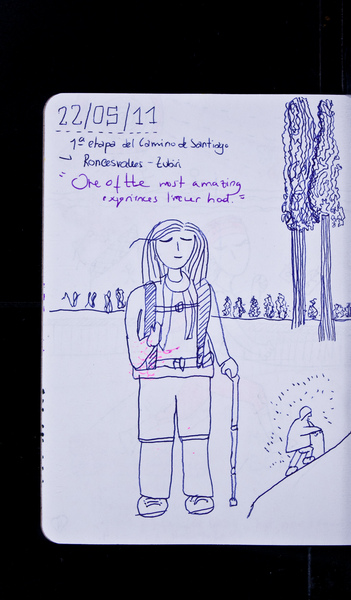 22/05/11
1ª etapa del Camino de Santiago
→ Roncesvalles - Zubiri
"One of the most amazing
experiences I never had."